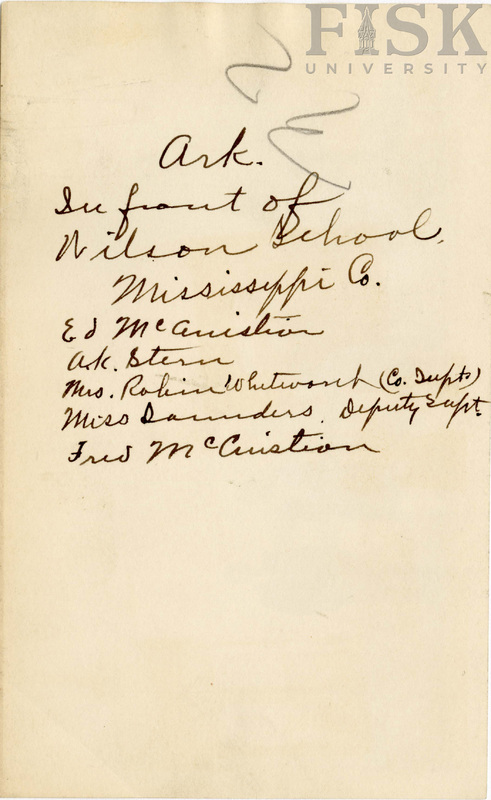 FISK
UNIVERSITY
Ark.
In front of
Wilson School,
Mississippi Co.
Ed McCuistion
A.K. Stern
Mrs. Robin Whitworth (Co. Supt.)
Miss Saunders, Deputy Supt.
Fred McCuistion